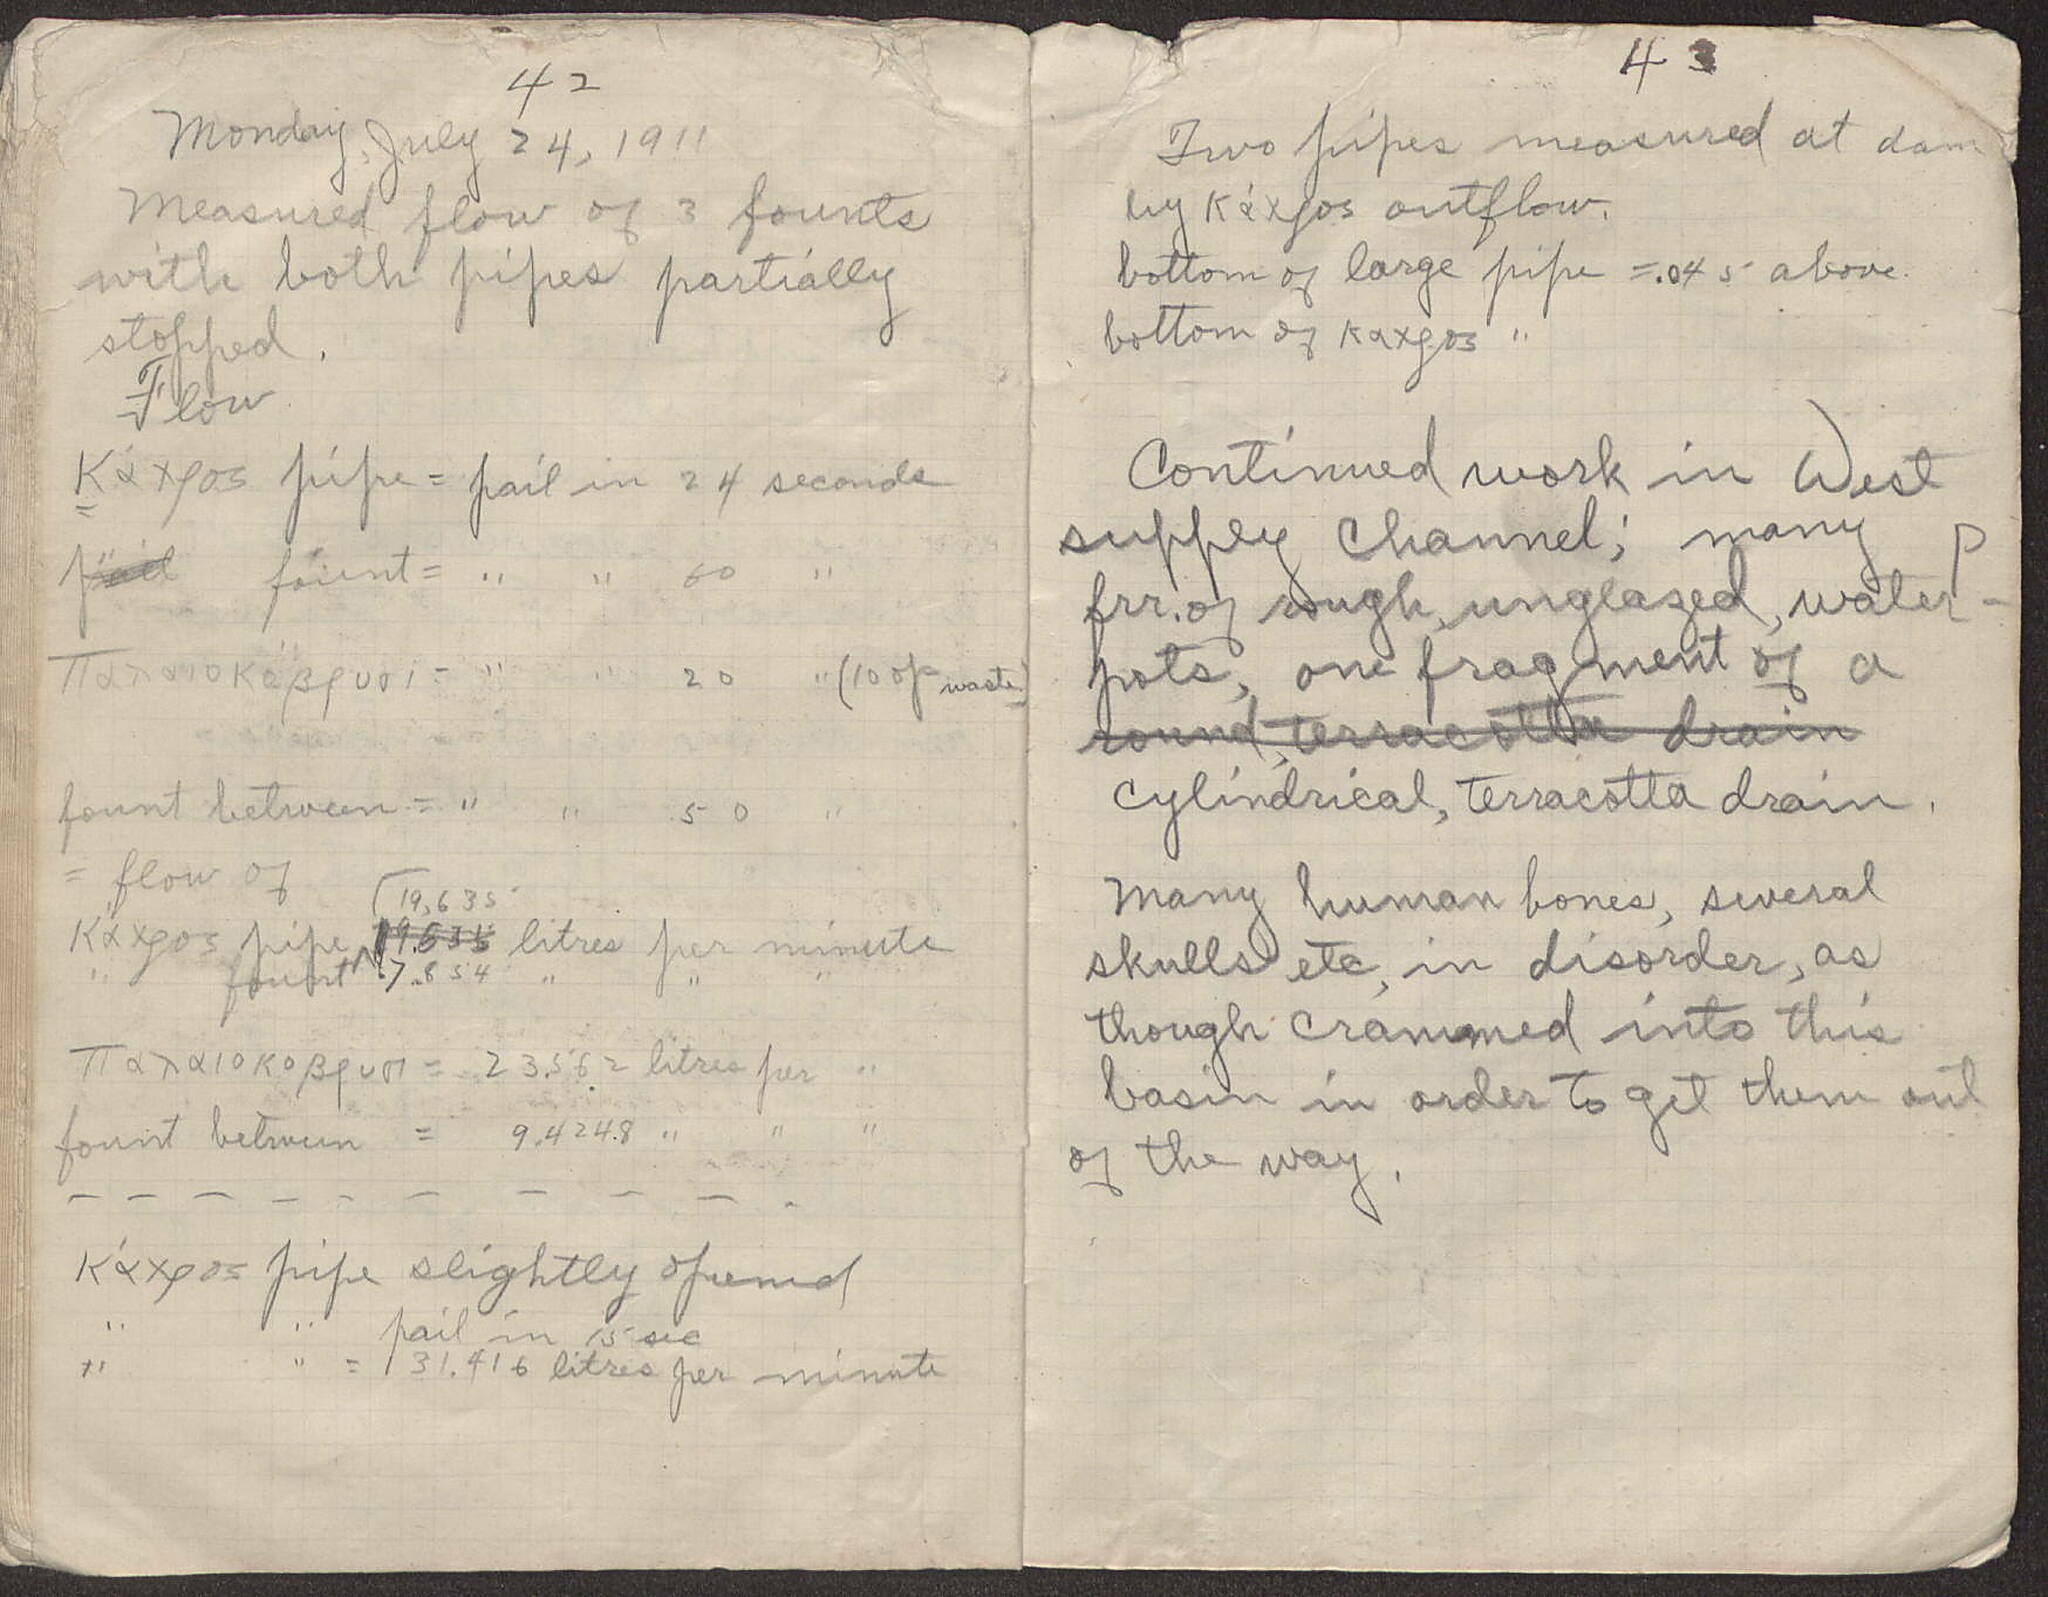 42
Monday, July 24, 1911
Measured flow of 3 founts
with both pipes partially
stopped.
Flow
Κάκρος pipe = pail in 24 seconds
" fount = " " 60 "
Παλαιοκόβρυσι = " " 20 " (10% waste)
fount between = " " 50 "
= flow of
Κάκρος pipe 19,635 litres per minute
" fount 7.854 " " "
Παλαιοκοβρυσι = 23.562 litres per "
fount between = 9.4248 " " "
Κάκρος pipe slightly opened
" " pail in 15 sec
" " = 31.416 litres per minute
43
Two pipes measured at dam
by Κάκρος outflow.
bottom of large pipe = .045 above
bottom of Κακρος "
Continued work in West
supply channel; many P
frr. of rough, unglazed, water-
pots, one fragment of a
round, terracotta drain
cylindrical, terracotta drain.
Many human bones, several
skulls etc, in disorder, as
though crammed into this
basin in order to get them out
of the way.